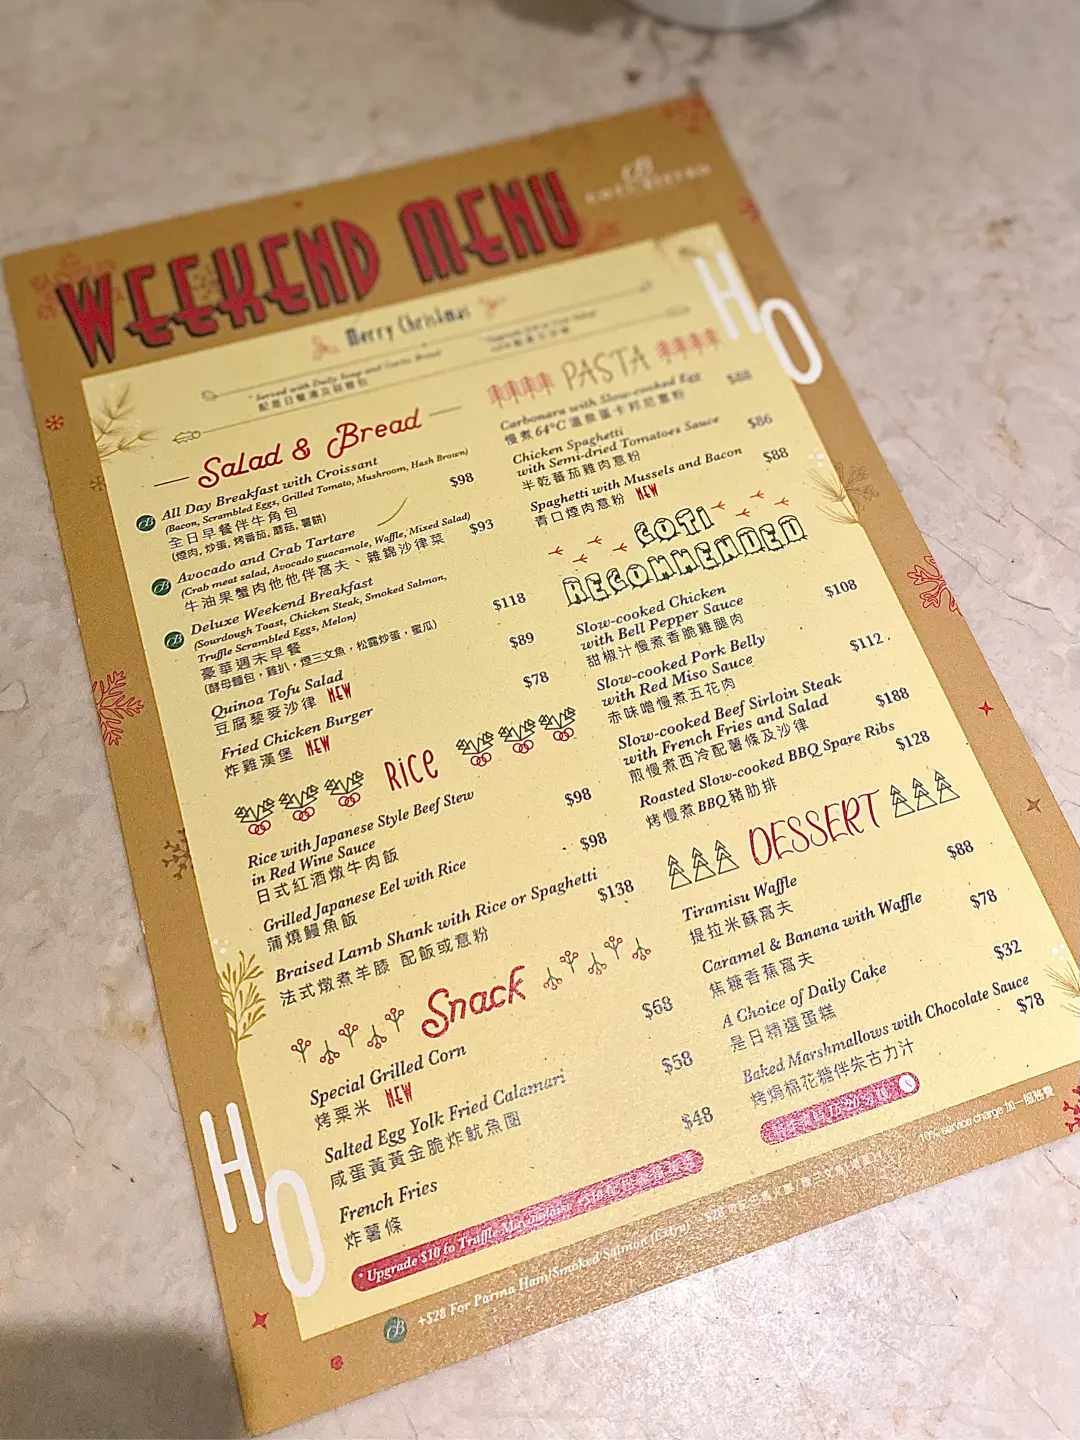 WEEKEND MENU
COTI BISTRO
HO
Merry Christmas
* Served with Daily Soup and Garlic Bread
配是日餐湯及蒜蓉包
Salad & Bread
All Day Breakfast with Croissant $98
(Bacon, Scrambled Eggs, Grilled Tomato, Mushroom, Hash Brown)
全日早餐伴牛角包
(煙肉, 炒蛋, 烤番茄, 蘑菇, 薯餅)
Avocado and Crab Tartare $93
(Crab meat salad, Avocado guacamole, Waffle, Mixed Salad)
牛油果蟹肉他他伴窩夫、雜錦沙律菜
Deluxe Weekend Breakfast $118
(Sourdough Toast, Chicken Steak, Smoked Salmon,
Truffle Scrambled Eggs, Melon)
豪華週末早餐
(酵母麵包，雞扒，煙三文魚，松露炒蛋，蜜瓜)
Quinoa Tofu Salad $89
豆腐藜麥沙律 NEW
Fried Chicken Burger $78
炸雞漢堡 NEW
RICE
Rice with Japanese Style Beef Stew
in Red Wine Sauce $98
日式紅酒燉牛肉飯
Grilled Japanese Eel with Rice $98
蒲燒鰻魚飯
Braised Lamb Shank with Rice or Spaghetti $138
法式燉煮羊膝 配飯或意粉
Snack
Special Grilled Corn $68
烤粟米 NEW
Salted Egg Yolk Fried Calamari $58
咸蛋黃黃金脆炸魷魚圈
French Fries $48
炸薯條
* Upgrade $10 to Truffle Mayonnaise
PASTA
Carbonara with Slow-cooked Egg $88
慢煮64°C溫泉蛋卡邦尼意粉
Chicken Spaghetti
with Semi-dried Tomatoes Sauce $86
半乾蕃茄雞肉意粉
Spaghetti with Mussels and Bacon $88
青口煙肉意粉 NEW
COTI
RECOMMENDED
Slow-cooked Chicken
with Bell Pepper Sauce $108
甜椒汁慢煮香脆雞腿肉
Slow-cooked Pork Belly
with Red Miso Sauce $112
赤味噌慢煮五花肉
Slow-cooked Beef Sirloin Steak
with French Fries and Salad $188
煎慢煮西冷配薯條及沙律
Roasted Slow-cooked BBQ Spare Ribs $128
烤慢煮BBQ豬肋排
DESSERT
Tiramisu Waffle $88
提拉米蘇窩夫
Caramel & Banana with Waffle $78
焦糖香蕉窩夫
A Choice of Daily Cake $32
是日精選蛋糕
Baked Marshmallows with Chocolate Sauce $78
烤焗棉花糖伴朱古力汁
10% service charge 加一服務費
HO
+$28 For Parma Ham/Smoked Salmon (Extra)